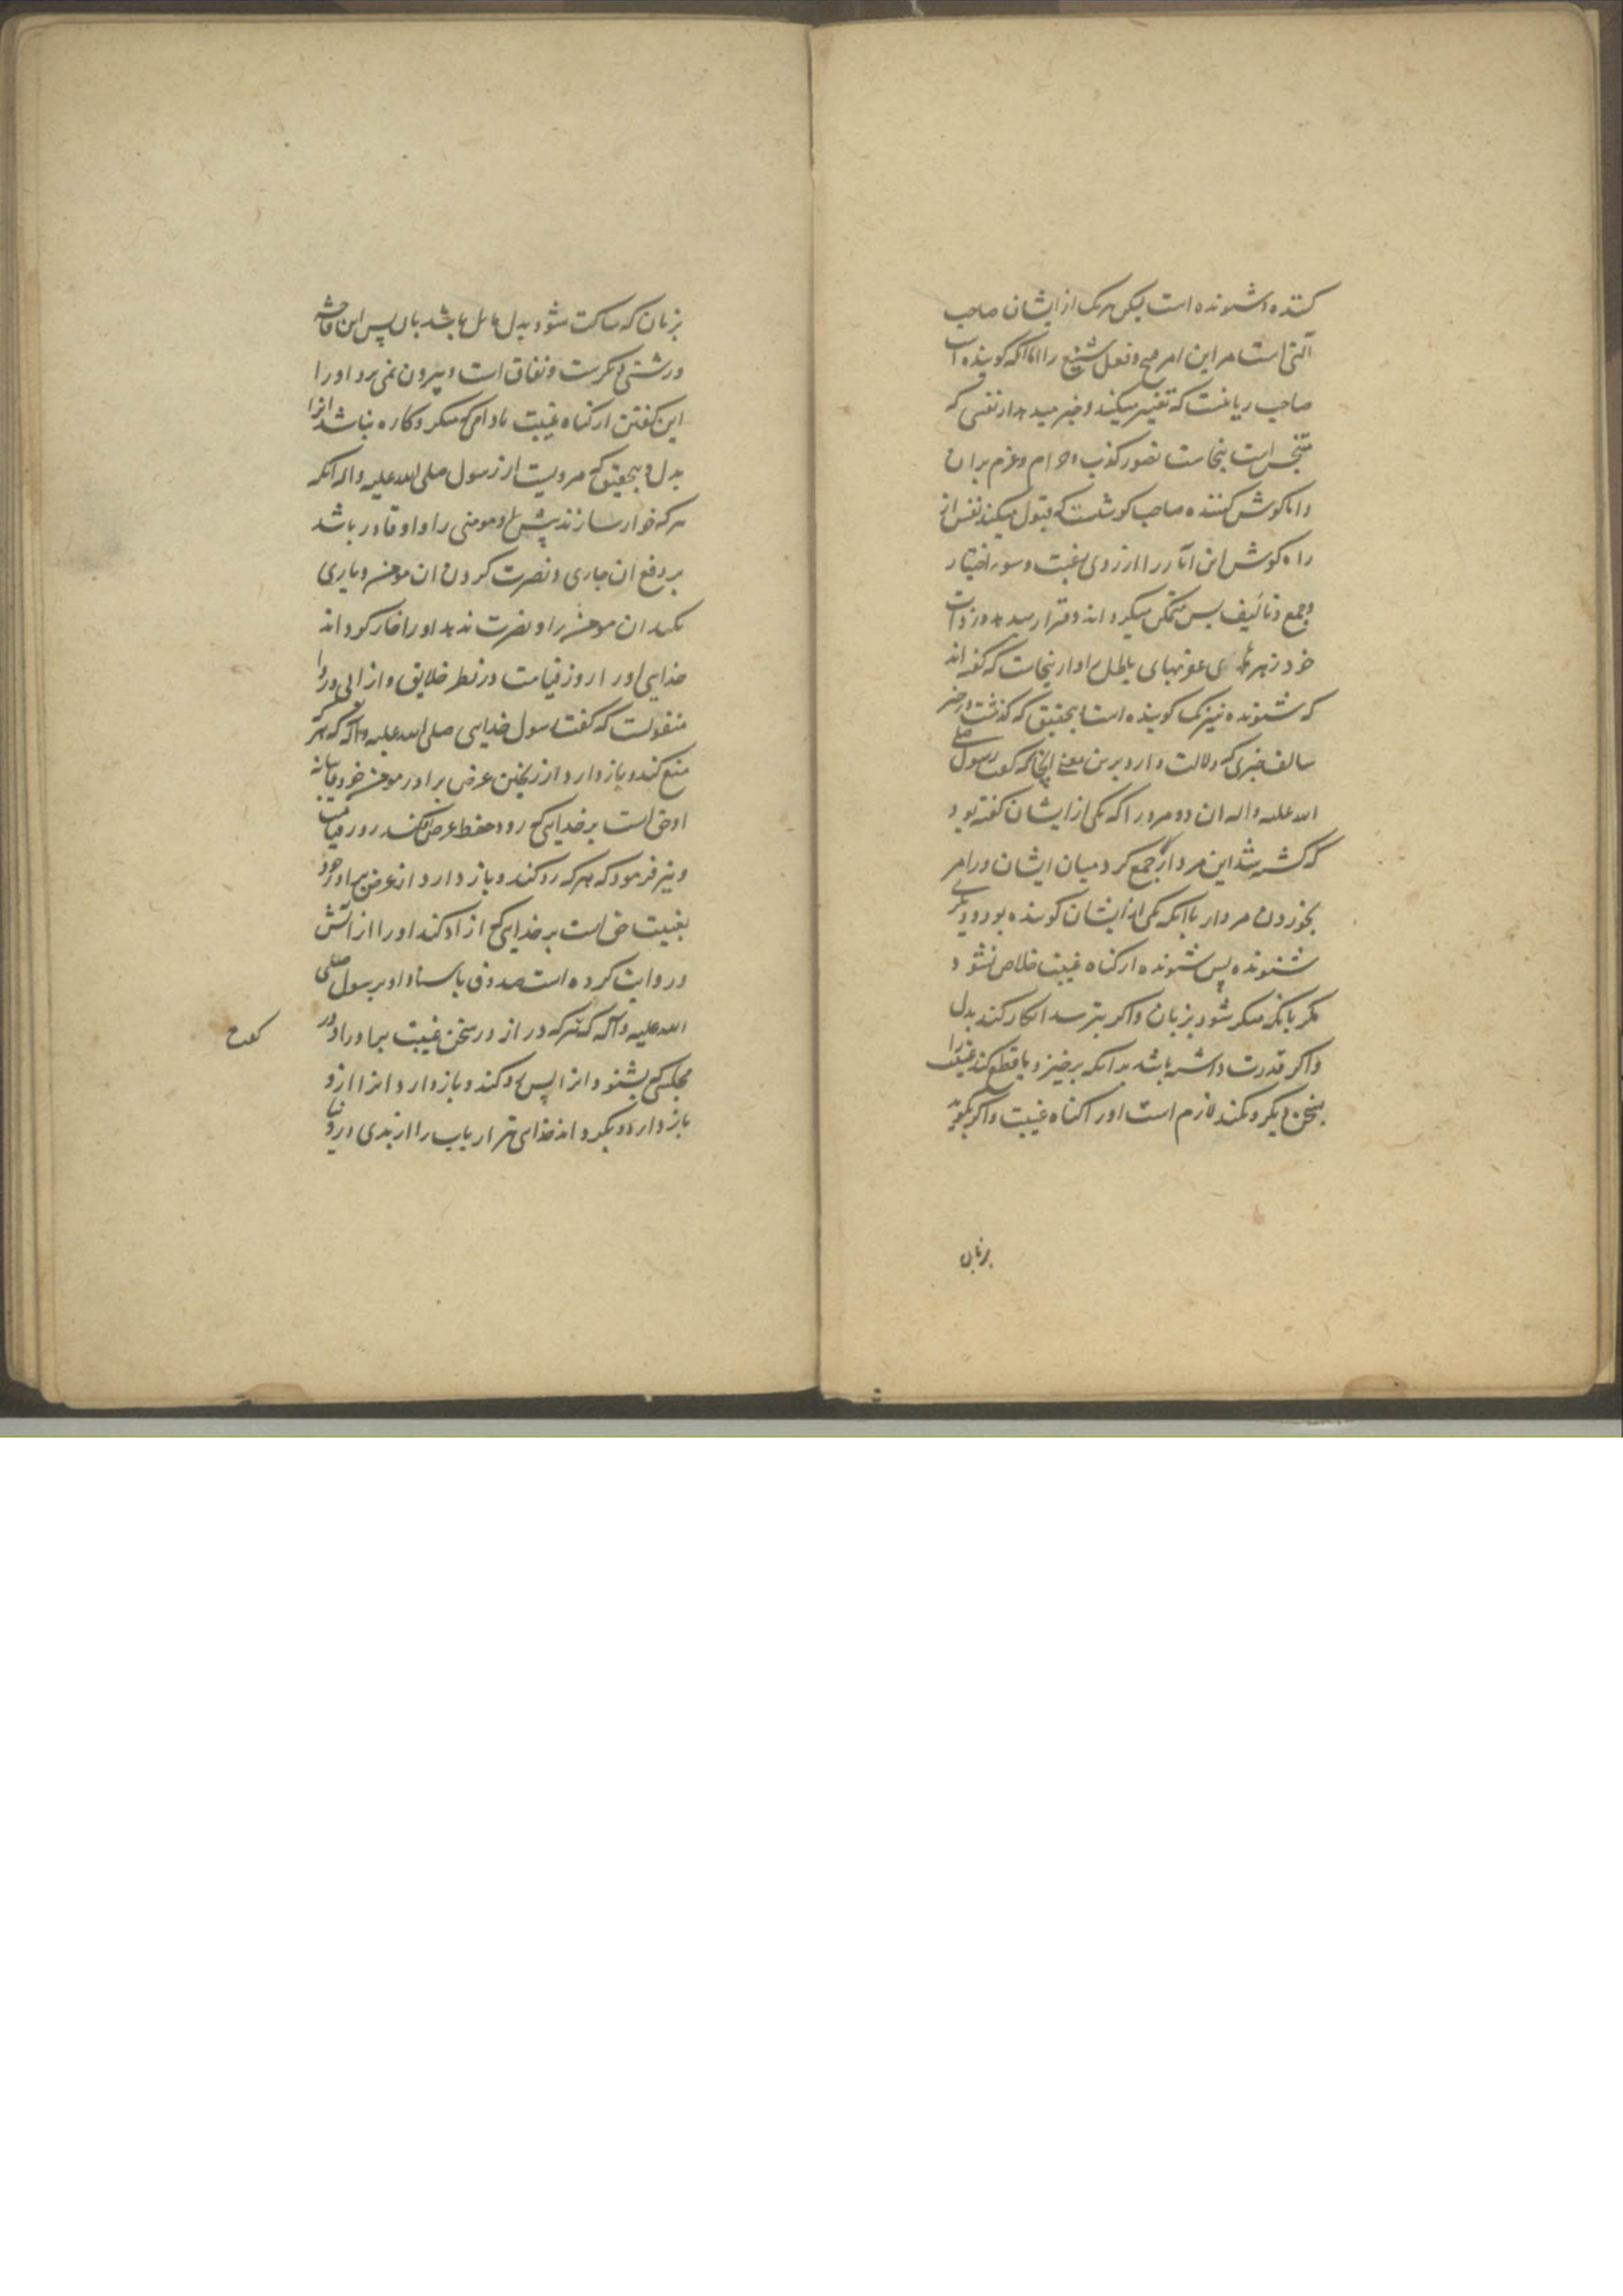 کننده و شنونده است لیکن هریک از ایشان صاحب
آلتی است مر این امر قبیح و فعل شنیع را اما آنکه گوینده است
صاحب زبانست که تعبیر میکند و خبر میدهد از نفسی که
متنجس است بنجاست تصور کذب و حرام و عزم بران
و اما گوش کننده صاحب گوشست که قبول میکند نفس از
راه گوش این آثار را از روی رغبت و سوء اختیار
و جمع و تالیف پس متمکن میگرداند و قرار میدهد در ذات
خود زهرهای عقربهای باطل را و ازینجاست که گفته اند
که شنونده نیز یک گوینده است بتحقیق که گذشت در خبر
سالف خبری که دلالت دارد برین معنی آنجا که گفت رسول صلی
الله علیه و اله ان دو مرد را که یکی از ایشان گفته بود
که کشته شد این مرد آنکه جمع کرد میان ایشان در امر
بخوردن مردار با آنکه یکی از ایشان گوینده بود و دیگری
شنونده پس شنونده از گناه غیبت خلاص نشود
مگر بانکه منکر شود بزبان و اگر بترسد انکار کند بدل
و اگر قدرت داشته باشد بدانکه برخیزد یا قطع کند غیبت را
بسخن دیگر و نکند لازم است او را گناه غیبت و اگر بگوید
بزبان
بزبان که ساکت شو و بدل مایل باشد بان پس این فاحشه
و زشتی دیگرست و نفاق است و بیرون نمی برد او را
این گفتن از گناه غیبت مادامی که منکر و کاره نباشد انرا
بدل و بتحقیق که مرویست از رسول صلی الله علیه و اله آنکه
هر که خوار سازند پیش او مومنی را و او قادر باشد
بر دفع ان خواری و نصرت کردن ان مومن و یاری
نکند ان مومن را و نصرت ندهد او را خوار گرداند
خدایی او را روز قیامت در نظر خلایق و از ابی دردا
منقولست که گفت رسول خدایی صلی الله علیه و اله که هر که
منع کند و باز دارد از ریختن عرض برادر مومن خود غایبانه
او حق است بر خدایی که رد و حفظ عرض او کند روز قیامت
و نیز فرمود که هر که رد کند و باز دارد از عرض برادر خود
بغیبت حق است بر خدایی که ازاد کند او را از آتش
و روایت کرده است صدوق باسناد او برسول صلی
الله علیه و آله که هر که در از در سخن غیبت برادر او در
مجلسی که بشنود انرا پس رد کند و باز دارد انرا ازو
باز دارد و بگرداند خدایی هزار باب را از بدی در دنیا